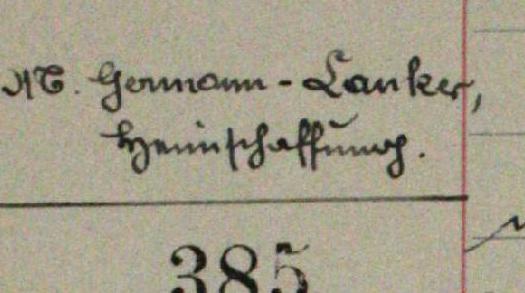 M. Germann-Lanker,
Heimschaffung.
385